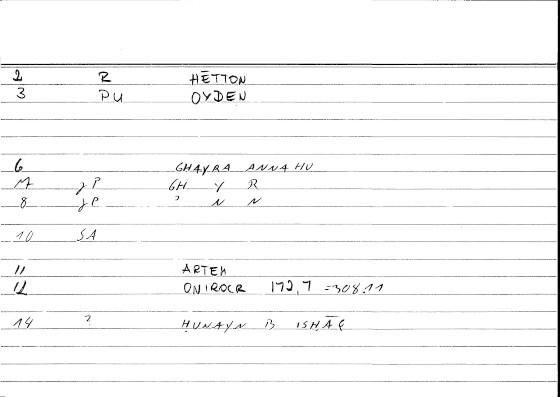 2 R HĒTTON
3 PU OYDEN
6 GHAYRA ANNAHU
M jP GH Y R
8 jP ' N N
10 SA
11 ARTEM
12 ONIROCR 172,7 =308.11
14 ? ḤUNAYN B ISḤĀQ